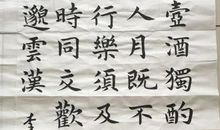 壺酒獨酌
人月既不
行樂須及
時同交歡
邈雲漢